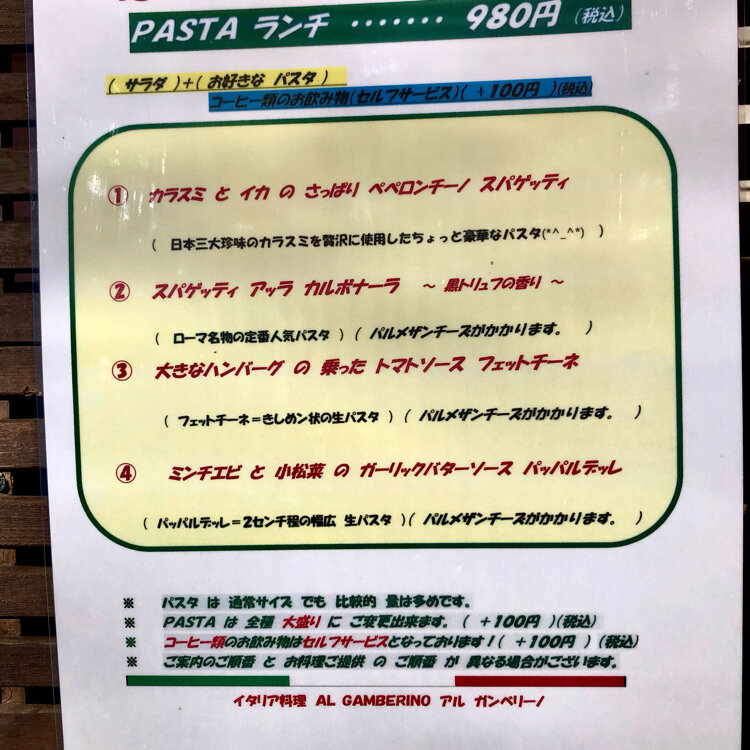 PASTA ランチ ・・・・・・・ 980円 (税込)
( サラダ )+( お好きな パスタ )
コーヒー類のお飲み物(セルフサービス)( +100円 )(税込)
① カラスミ と イカ の さっぱり ペペロンチーノ スパゲッティ
( 日本三大珍味のカラスミを贅沢に使用したちょっと豪華なパスタ(*^_^*) )
② スパゲッティ アッラ カルボナーラ ～ 黒トリュフの香り ～
( ローマ名物の定番人気パスタ )( パルメザンチーズがかかります。 )
③ 大きなハンバーグ の 乗った トマトソース フェットチーネ
( フェットチーネ=きしめン状の生パスタ )( パルメザンチーズがかかります。 )
④ ミンチエビ と 小松菜 の ガーリックバターソース パッパルデッレ
( パッパルデッレ=2センチ程の幅広 生パスタ )( パルメザンチーズがかかります。 )
※ パスタ は 通常サイズ でも 比較的 量は多めです。
※ PASTA は 全種 大盛り に ご変更出来ます。 ( +100円 )(税込)
※ コーヒー類のお飲み物はセルフサービスとなっております!( +100円 )(税込)
※ ご案内のご順番 と お料理ご提供 の ご順番 が 異なる場合がございます。
イタリア料理 AL GAMBERINO アル ガンベリーノ